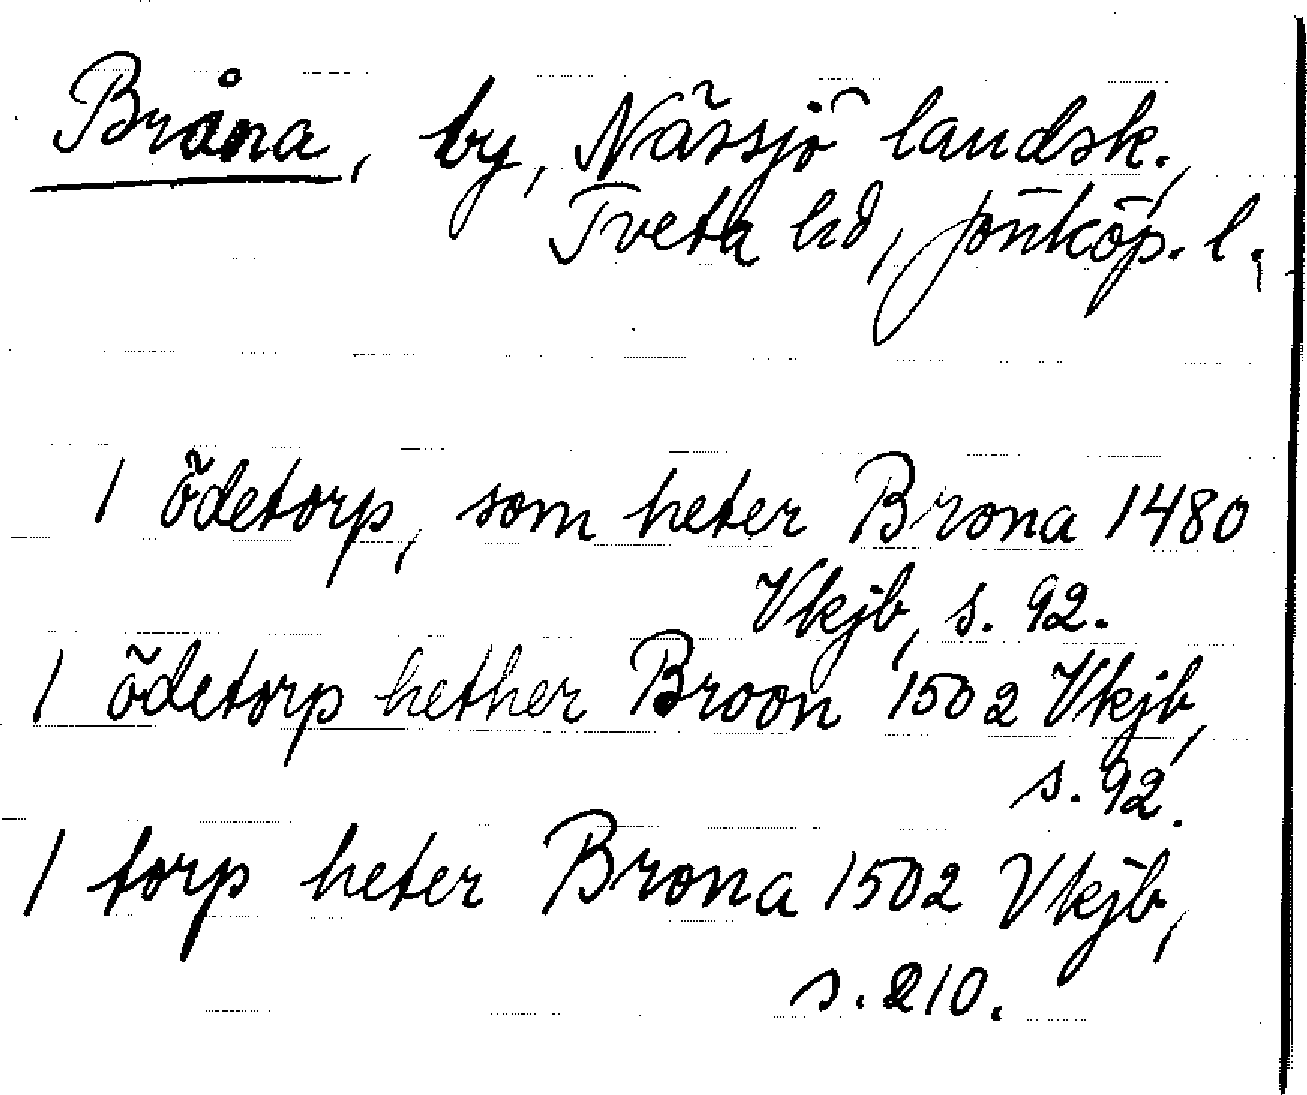 Bråna, by, Nässjö landsk.,
Tveta hd, Jönköp. l.,
1 ödetorp, som heter Brona 1480
Vkjb, s. 92.
1 ödetorp hether Broon 1502 Vkjb,
s. 92.
1 torp heter Brona 1502 Vkjb,
s. 210.